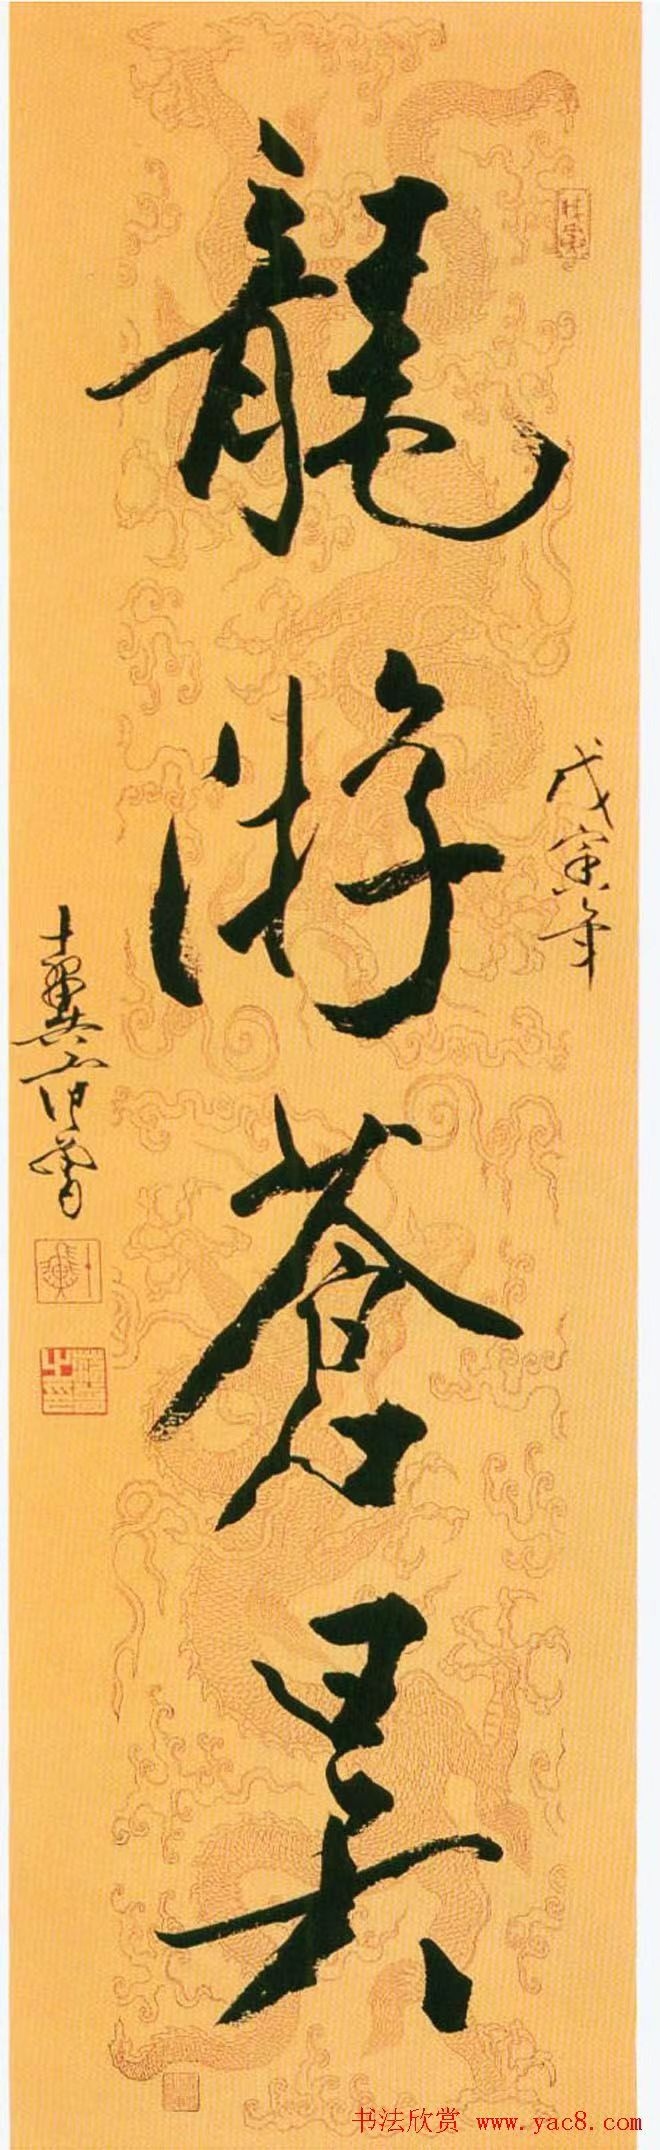 龍游蒼昊
戊寅年
十翼范曾
书法欣赏 www.yac8.com